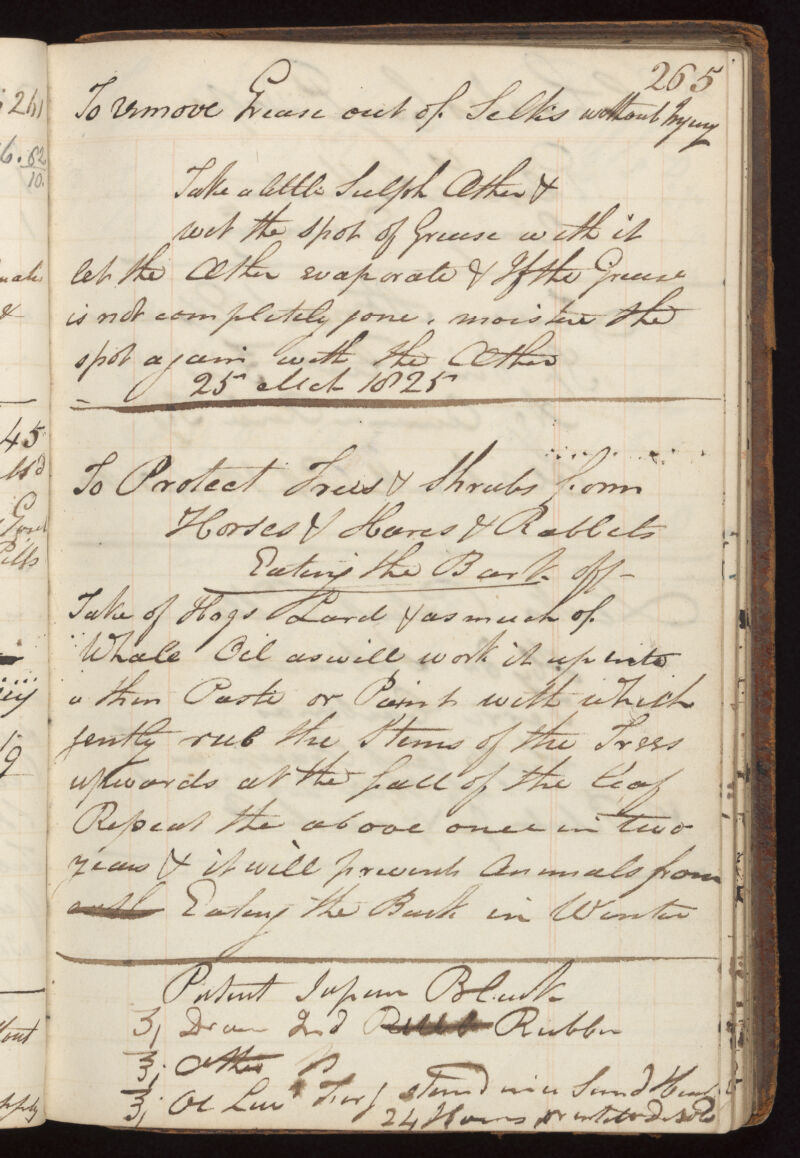 265
To remove Grease out of Silks without Injury
Take a little Sulph Æther &
wet the spot of Grease with it
let the Æther evaporate & If the Grease
is not completely gone, moisten the
spot again with the Æther
25 Mch 1825
To Protect Trees & Shrubs form
Horses & Hares & Rabbits
Eating the Bark off -
Take of Hogs Lard & as much of
Whale Oil as will work it up into
a thin Paste or Paint with which
gently rub the Stems of the Trees
upwards at the fall of the leaf
Repeat the above once in two
years & it will prevent Animals from
Eating the Bark in Winter
Patent Japan Black
ʒj Ind Rubber
ʒj
ʒj Ol stand in a Sand Heat
24 Hours